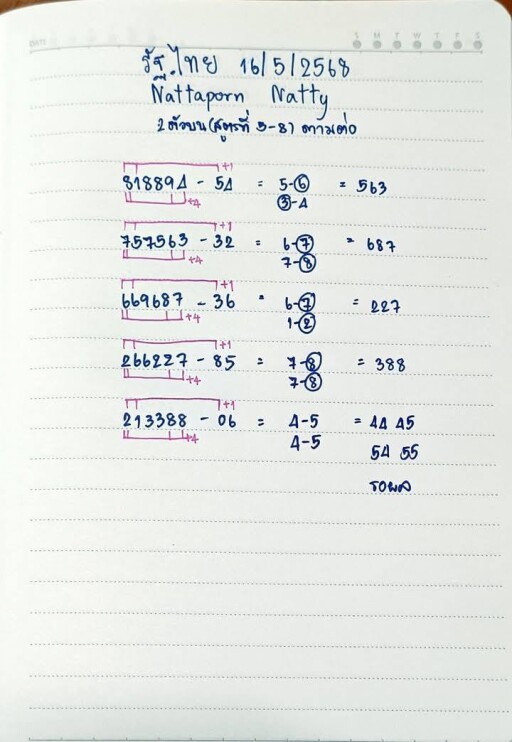 S M T W T F S
รัฐ.ไทย 16/5/2568
Nattaporn Natty
2 ตัวบน (สูตรที่ 5-8) ตามต่อ
+1
818894 - 54 = 5-6 = 563
+4 3-4
+1
757563 - 32 = 6-7 = 687
+4 7-8
+1
669687 - 36 = 6-7 = 227
+4 1-2
+1
266227 - 85 = 7-8 = 388
+4 7-8
+1
213388 - 06 = 4-5 = 44 45
+4 4-5 54 55
รอผล